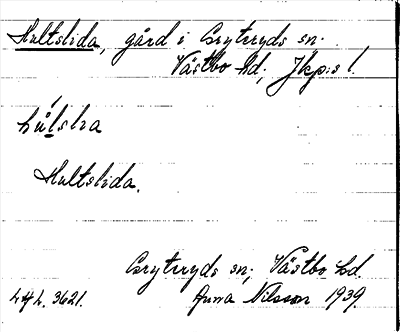 Hultslida, gård i Gryteryds sn.
Västbo hd, Jkp:s l.
húlslra
Hultslida.
Gryteryds sn, Västbo hd.
Anna Nilsson 1939.